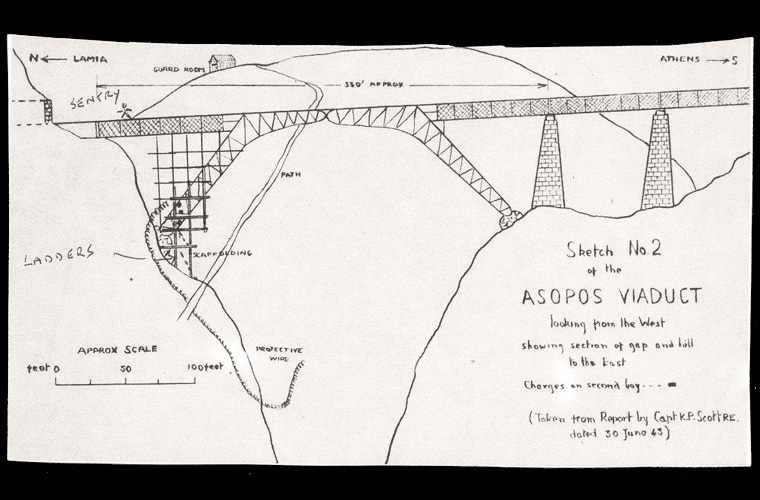 N ← LAMIA
ATHENS → S
GUARD ROOM
330' APPROX
SENTRY
PATH
LADDERS
SCAFFOLDING
PROTECTIVE
WIRE
APPROX SCALE
feet 0 50 100 feet
Sketch No. 2
of the
ASOPOS VIADUCT
looking from the West
showing section of gap and hill
to the East
Charges on second bay ---
(Taken from Report by Capt K.P. Scott RE.
dated 30 June 43)